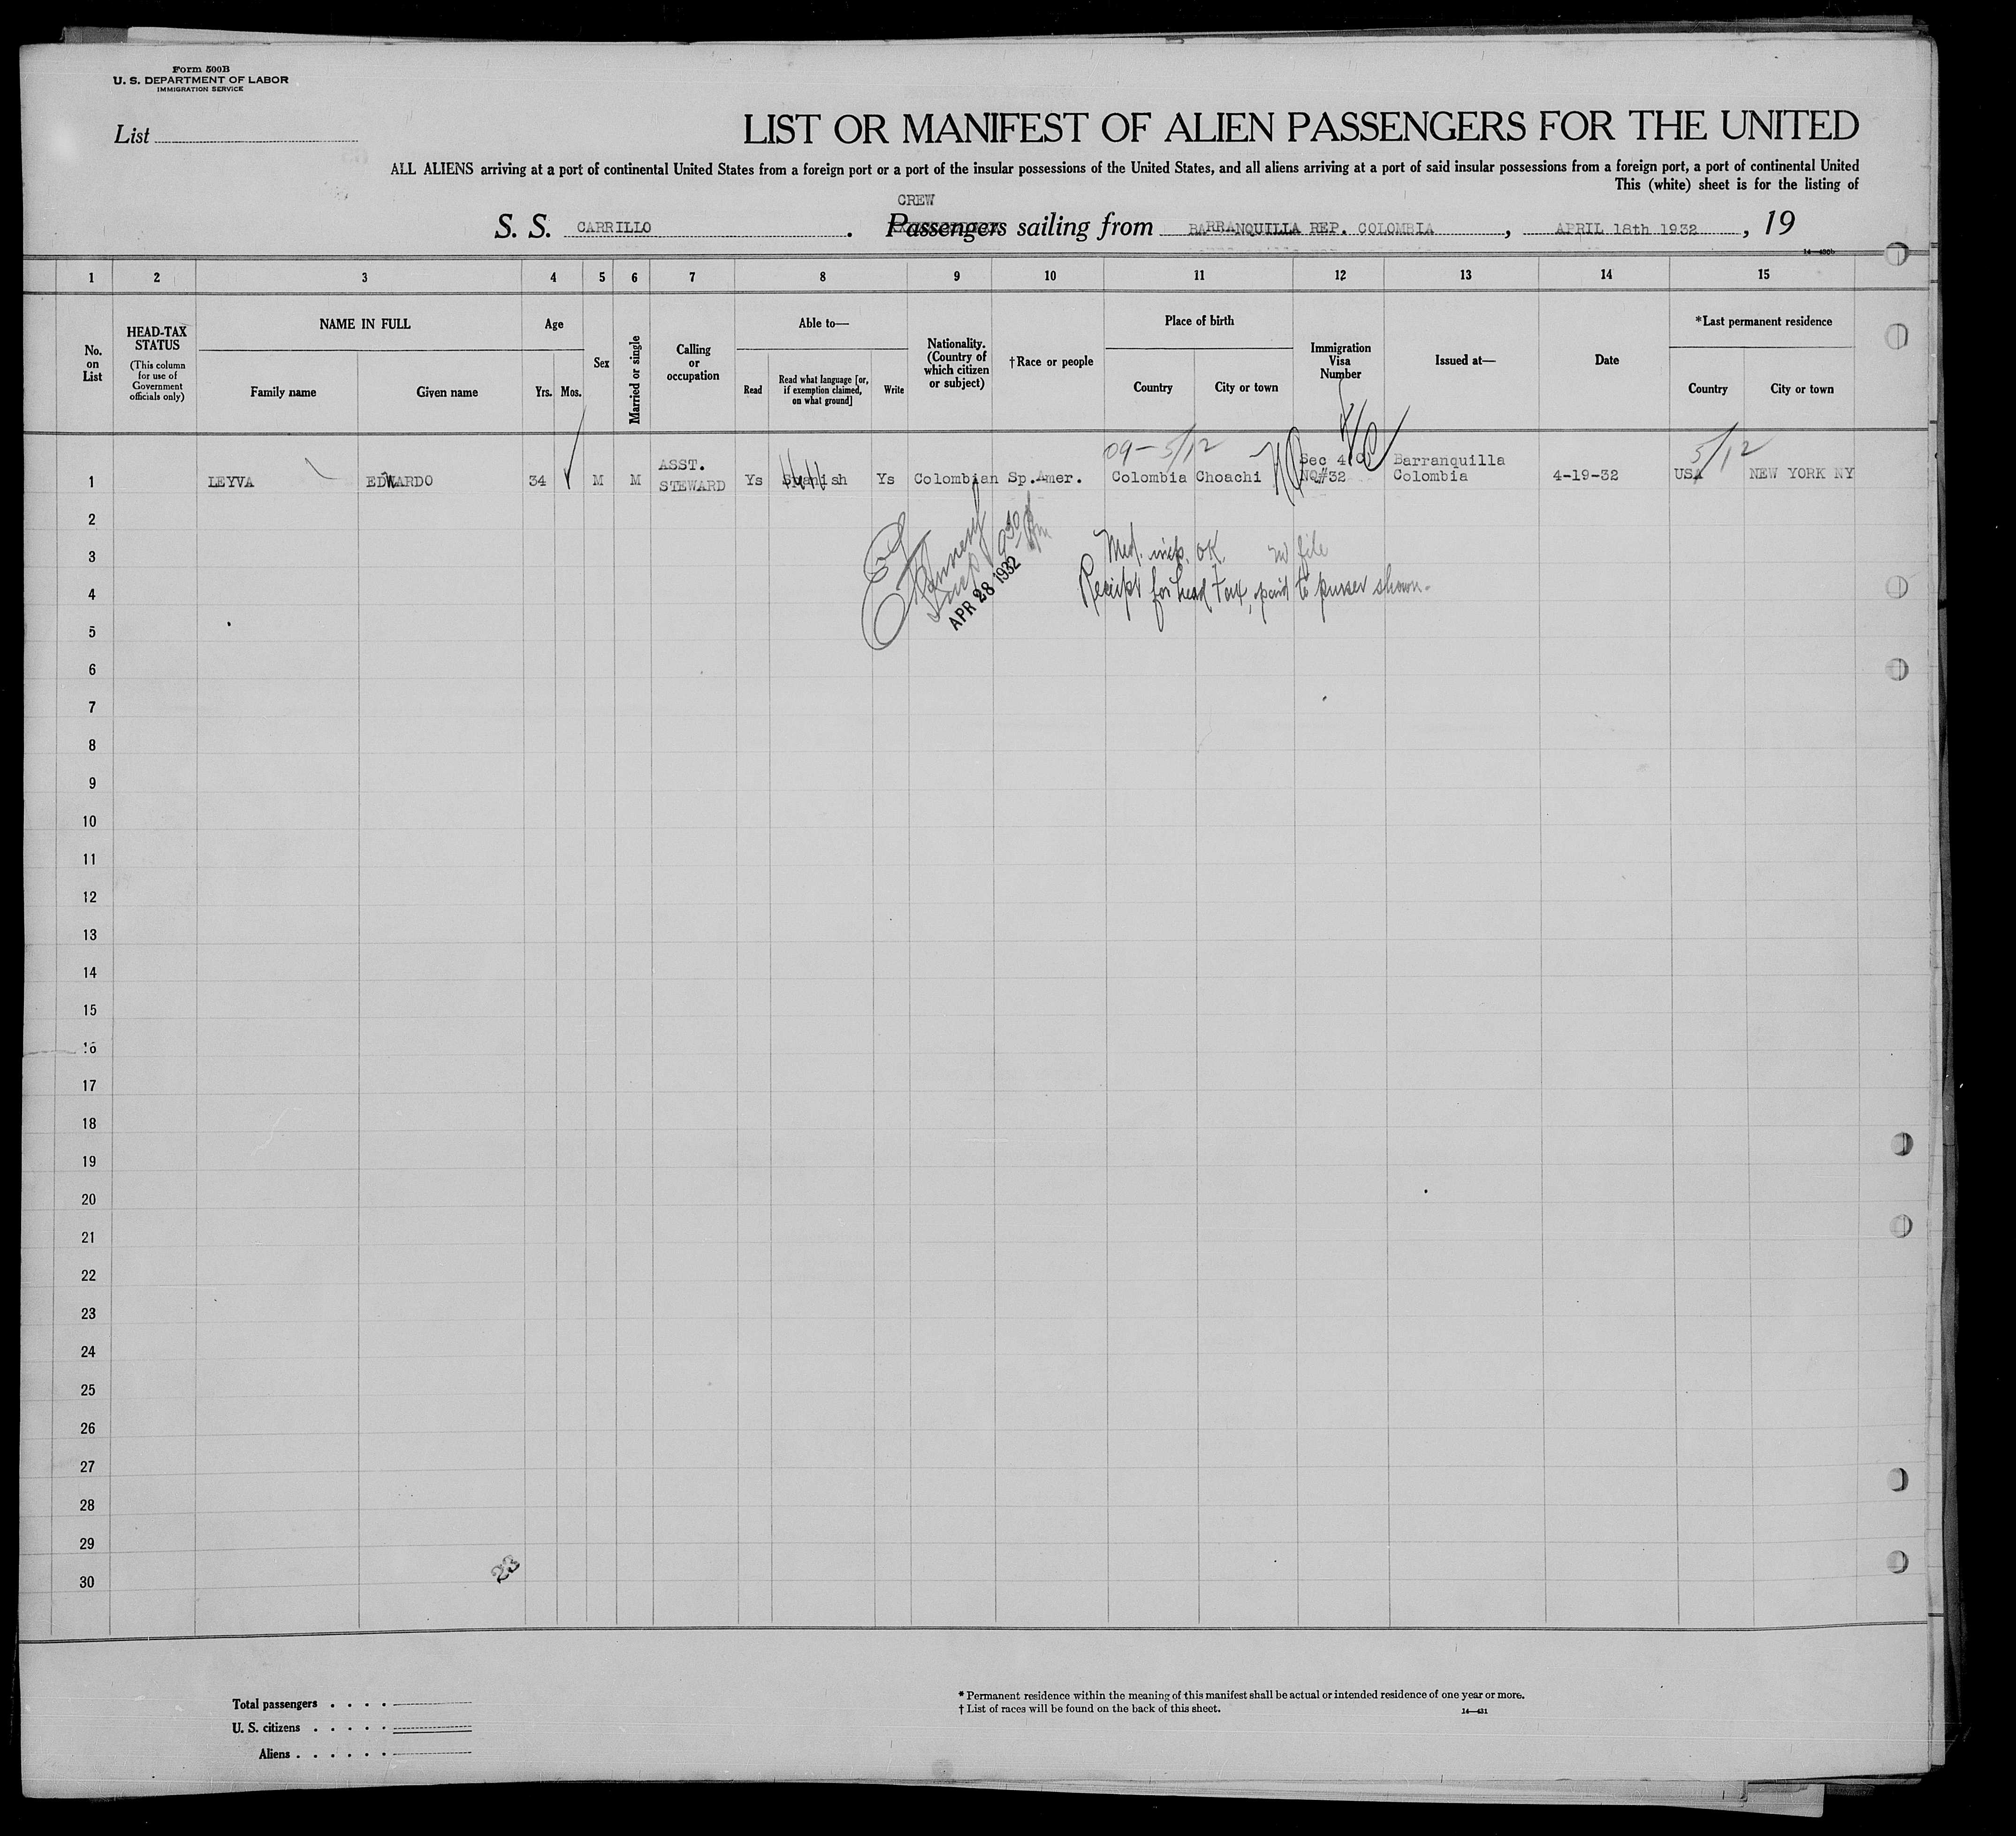 Form 500B
U. S. DEPARTMENT OF LABOR
IMMIGRATION SERVICE
List
LIST OR MANIFEST OF ALIEN PASSENGERS FOR THE UNITED
ALL ALIENS arriving at a port of continental United States from a foreign port or a port of the insular possessions of the United States, and all aliens arriving at a port of said insular possessions from a foreign port, a port of continental United
This (white) sheet is for the listing of
CREW
S. S. CARRILLO. Passengers sailing from BARRANQUILLA REP. COLOMBIA, APRIL 18th 1932, 19
14—430b
1 2 3 4 5 6 7 8 9 10 11 12 13 14 15
No. on List
HEAD-TAX STATUS
(This column for use of Government officials only)
NAME IN FULL
Family name
Given name
Age
Yrs.
Mos.
Sex
Married or single
Calling or occupation
Able to—
Read
Read what language [or, if exemption claimed, on what ground]
Write
Nationality. (Country of which citizen or subject)
†Race or people
Place of birth
Country
City or town
Immigration Visa Number
Issued at—
Date
*Last permanent residence
Country
City or town
09-5/12
5/12
1 LEYVA EDWARDO 34 M M ASST. STEWARD Ys Spanish Ys Colombian Sp.Amer. Colombia Choachi Sec 4(C) NQ#32 Barranquilla Colombia 4-19-32 USA NEW YORK NY
2
3
Med. insp. OK. file
4
Receipt for head tax, paid to purser shown.
APR 28 1932
5
6
7
8
9
10
11
12
13
14
15
16
17
18
19
20
21
22
23
24
25
26
27
28
29
30
23
Total passengers . . . .
U. S. citizens . . . . .
Aliens . . . . . .
* Permanent residence within the meaning of this manifest shall be actual or intended residence of one year or more.
† List of races will be found on the back of this sheet.
14—431